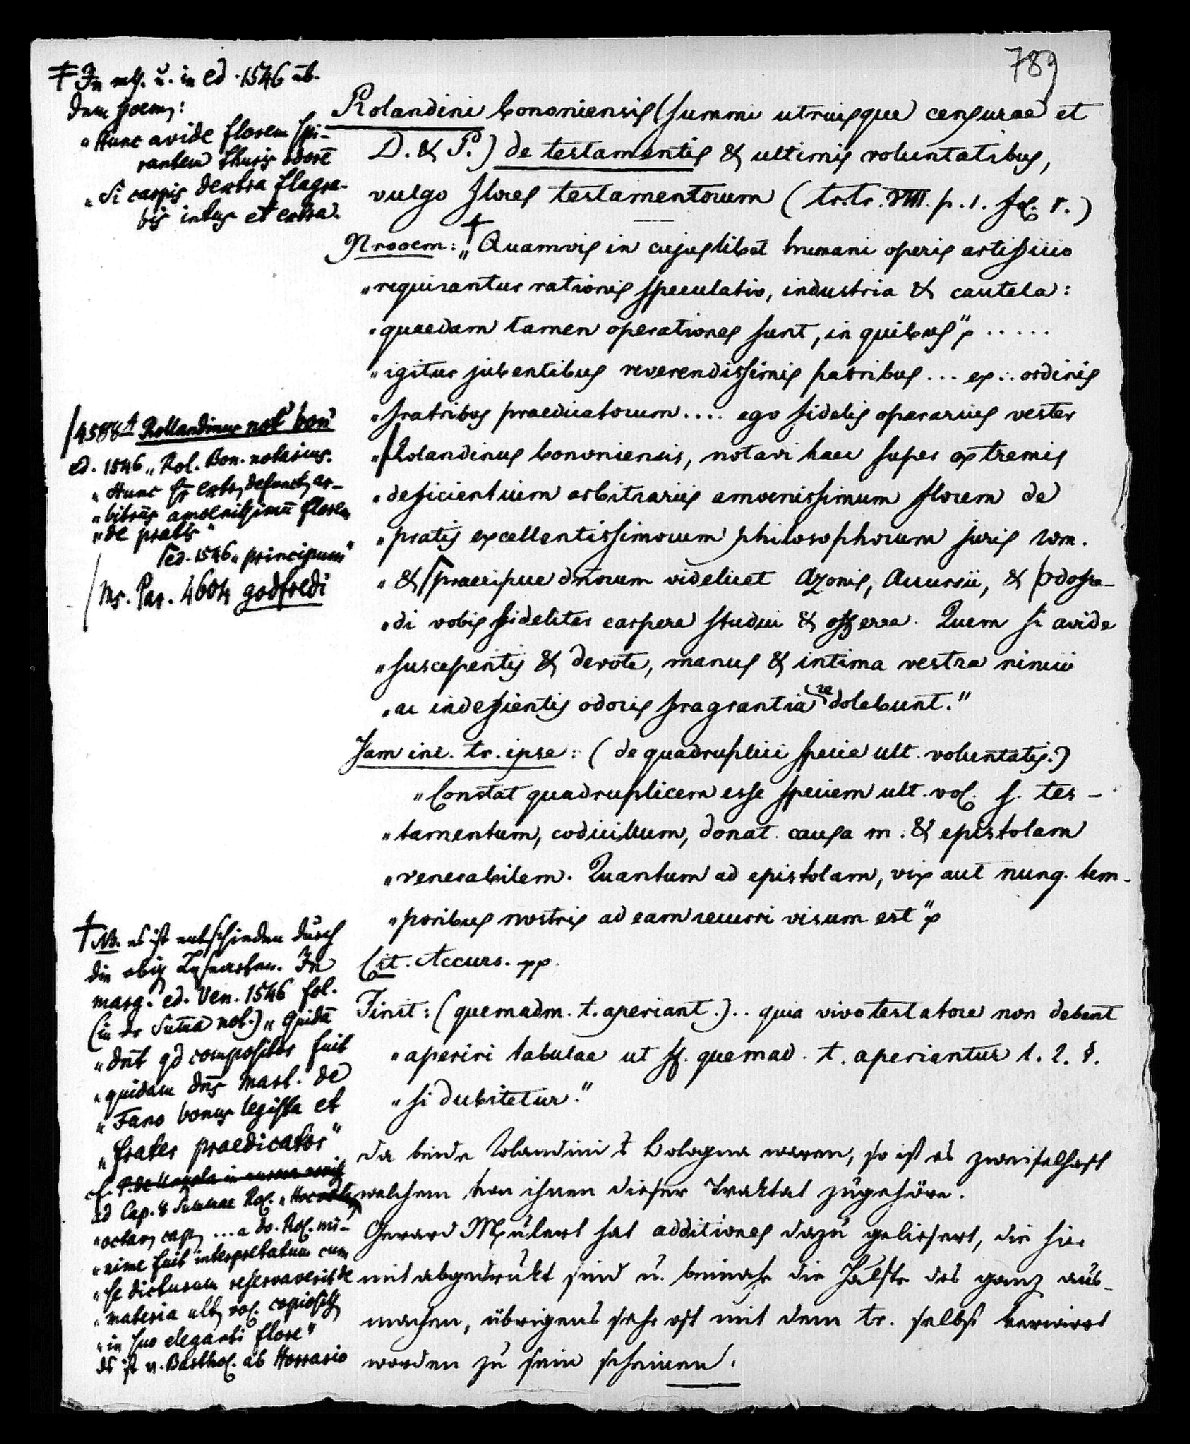 789
Rolandini bononiensis (summi utriusque censurae et
D. & P.) de testamentis & ultimis voluntatibus,
vulgo flores testamentorum (trtr. VIII. p. 1. fol. r.)
Prooem: „Quamvis in cujuslibet humani operis artificio
„requirantur rationis speculatio, industria & cautela:
„quaedam tamen operationes sunt, in quibus" .....
„igitur jubentibus reverendissimis patribus ... ex .. ordinis
„fratribus praedicatorum .... ego fidelis operarius vester
„Rolandinus bononiensis, notavi haec super extremis
„deficientium arbitrariis amoenissimum florem de
„pratis excellentissimorum philosophorum juris rom.
„& praecipue dnorum videlicet Azonis, Accursii, & Odofre-
„di vobis fideliter carpere studui & offerre. Quem si avide
„susceperitis & devote, manus & intima vestra nimii
„ac indeficientis odoris fragrantia redolebunt."
Jam inc. tr. ipse: (de quadruplici specie ult. voluntatis.)
„Constat quadruplicem esse speciem ult. vol. s. tes-
„tamentum, codicillum, donat. causa m. & epistolam
„venerabilem. Quantum ad epistolam, vix aut nunq. tem-
„poribus nostris ad eam recurri visum est"
Cit. Accurs. pp.
Finit: (quemadm. t. aperiant.) .. quia vivo testatore non debent
„aperiri tabulae ut ff. quemad. t. aperiantur l. 2. §.
„si dubitetur."
da beide Rolandini v Bologna waren, so ist es zweifelhaft
welchem von ihnen dieser Traktat zugehöre.
Gerard Mulert hat additiones dazu geliefert, die hier
mit abgedrukt sind u. beinahe die Hälfte des ganz aus-
machen, übrigens sehr oft mit dem tr. selbst verwirrt
worden zu sein scheinen.
‡ In ms. u. in ed. 1546 üb.
dem poem:
„Hunc avide florem spi-
rantem thuris odorē
„Si carpis dextra flagra-
bis intus et extra.
4588 Rollandinus not' bon'
ed. 1546 „Rol. Bon. notarius.
„Hunc defunct, ar-
„bitriis amoenissimū florem
„de pratis"
ed. 1546 „principum"
Ms. Par. 4604 godfredi
† NB. es ist entschieden durch
die obig. In
marg. ed. Ven. 1546 fol.
(in der Sūma not.) „Quidā
„dnt qd compositor fuit
„quidam dns Mart. de
„Fano bonus legista et
„frater praedicator"
ad Cap. 8 Summae Rol.
„octav. cap. ... a do. Rol. mi-
„nime fuit interpretatum cum
„se dicturum reservaverit de
„materia ult. vol.
„in suo eleganti flore"